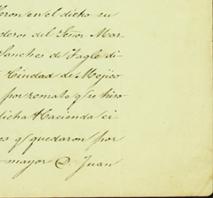 eron en el dicho su
deros del Señor Mar
Sanches de Tagle di
Ciudad de Mejico
por remate q^e hizo
dicha Hacienda ci
os q^e quedaron por
mayor D. Juan